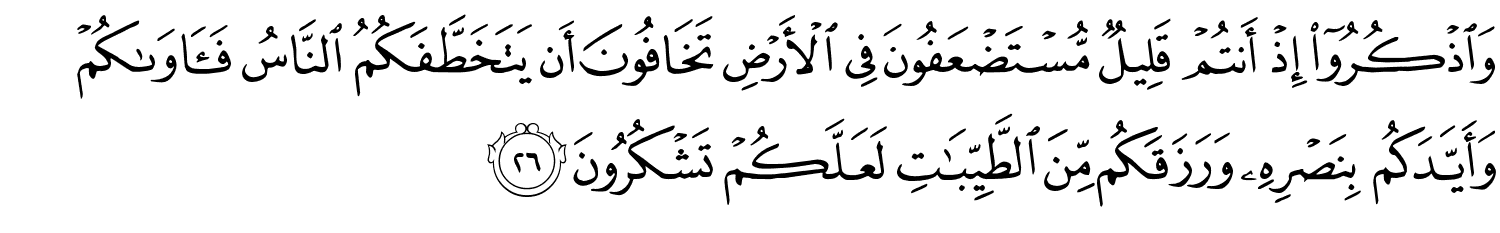 وَٱذۡكُرُوٓاْ إِذۡ أَنتُمۡ قَلِيلٞ مُّسۡتَضۡعَفُونَ فِي ٱلۡأَرۡضِ تَخَافُونَ أَن يَتَخَطَّفَكُمُ ٱلنَّاسُ فَـَٔاوَىٰكُمۡ
وَأَيَّدَكُم بِنَصۡرِهِۦ وَرَزَقَكُم مِّنَ ٱلطَّيِّبَٰتِ لَعَلَّكُمۡ تَشۡكُرُونَ ٢٦